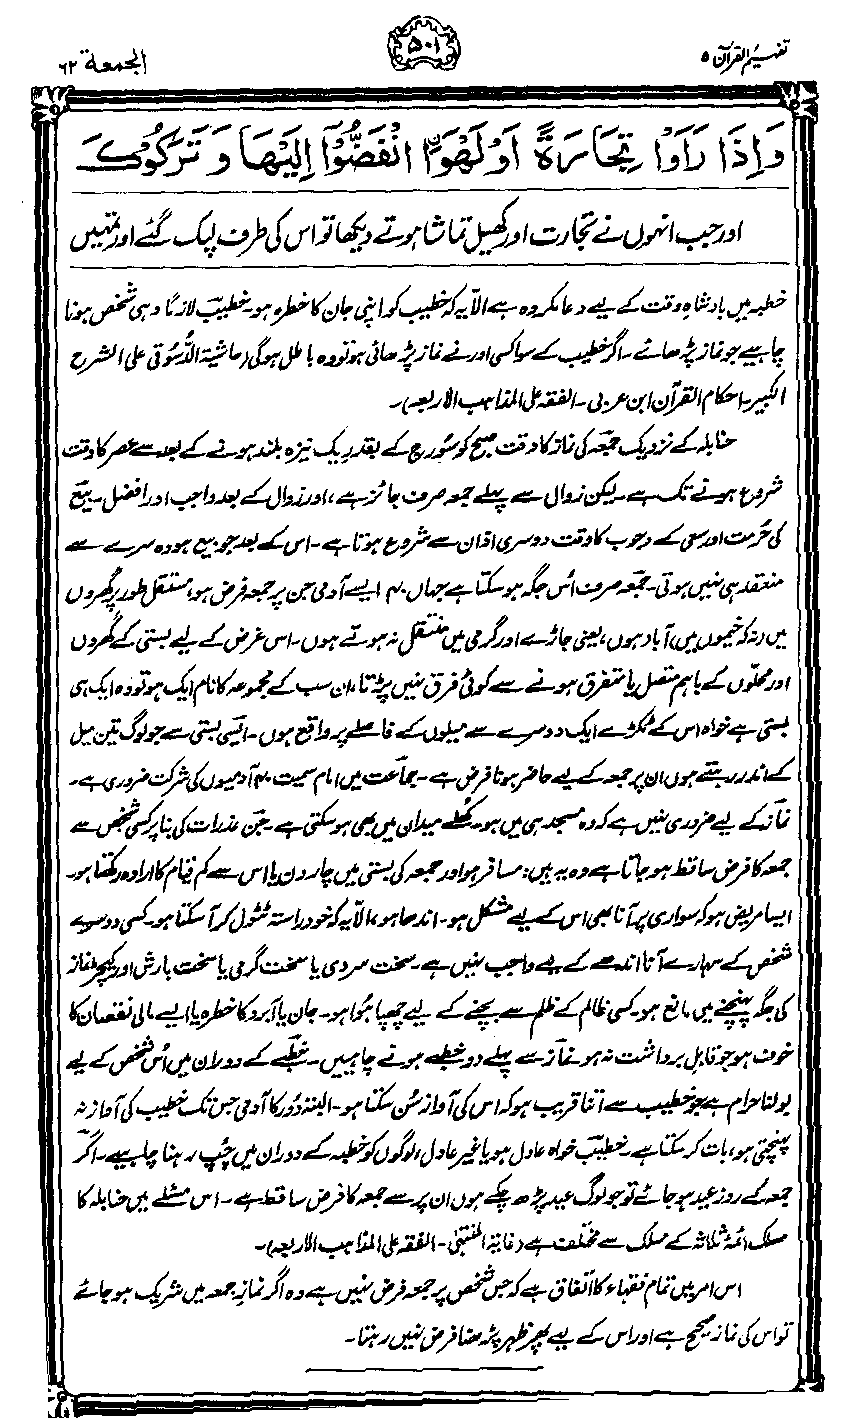 تفہیم القرآن ۵
۵۰۱
الجمعۃ ۶۲
وَاِذَا رَاَوْا تِجَارَةً اَوْ لَهْوَا ِ۟انْفَضُّوْٓا اِلَيْهَا وَ تَرَكُوْكَ
اور جب انہوں نے تجارت اور کھیل تماشا ہوتے دیکھا تو اس کی طرف لپک گئے اور تمہیں
خطبہ میں بادشاہِ وقت کے لیے دعا مکروہ ہے الّا یہ کہ خطیب کو اپنی جان کا خطرہ ہو۔ خطیب لازمًا وہی شخص ہونا
چاہیے جو نماز پڑھائے۔ اگر خطیب کے سوا کسی اور نے نماز پڑھائی ہو تو وہ باطل ہوگی (حاشیۃ الدُّسُوقی علی الشرح
الکبیر۔ احکام القرآن ابن عربی۔ الفقہ علی المذاہب الاربعہ)۔
حنابلہ کے نزدیک جمعہ کی نماز کا وقت صبح کو سُورج کے بقدر یک نیزہ بلند ہونے کے بعد سے عصر کا وقت
شروع ہونے تک ہے۔ لیکن زوال سے پہلے جمعہ صرف جائز ہے، اور زوال کے بعد واجب اور افضل۔ بیع
کی حرمت اور سعی کے وجوب کا وقت دوسری اذان سے شروع ہوتا ہے۔ اس کے بعد جو بیع ہو وہ سرے سے
منعقد ہی نہیں ہوتی۔ جمعہ صرف اُس جگہ ہو سکتا ہے جہاں ۴۰ ایسے آدمی جن پر جمعہ فرض ہو، مستقل طور پر گھروں
میں (نہ کہ خیموں میں) آباد ہوں، یعنی جاڑے اور گرمی میں منتقل نہ ہوتے ہوں۔ اس غرض کے لیے بستی کے گھروں
اور محلّوں کے باہم متصل یا متفرق ہونے سے کوئی فرق نہیں پڑتا، ان سب کے مجموعہ کا نام ایک ہو تو وہ ایک ہی
بستی ہے خواہ اس کے ٹکڑے ایک دوسرے سے میلوں کے فاصلے پر واقع ہوں۔ ایسی بستی سے جو لوگ تین میل
کے اندر رہتے ہوں ان پر جمعہ کے لیے حاضر ہونا فرض ہے۔ جماعت میں امام سمیت ۴۰ آدمیوں کی شرکت ضروری ہے۔
نماز کے لیے ضروری نہیں ہے کہ وہ مسجد ہی میں ہو۔ کُھلے میدان میں بھی ہو سکتی ہے۔ جن عذرات کی بنا پر کسی شخص سے
جمعہ کا فرض ساقط ہو جاتا ہے وہ یہ ہیں: مسافر ہو اور جمعہ کی بستی میں چار دن یا اس سے کم قیام کا ارادہ رکھتا ہو۔
ایسا مریض ہو کہ سواری پر آنا بھی اس کے لیے مشکل ہو۔ اندھا ہو، الّا یہ کہ خود راستہ ٹٹول کر آ سکتا ہو۔ کسی دوسرے
شخص کے سہارے آنا اندھے کے لیے واجب نہیں ہے۔ سخت سردی یا سخت گرمی یا سخت بارش اور کیچڑ نماز
کی جگہ پہنچنے میں مانع ہو۔ کسی ظالم کے ظلم سے بچنے کے لیے چھپا ہُوا ہو۔ جان یا آبرو کا خطرہ یا ایسے مالی نقصان کا
خوف ہو جو قابل برداشت نہ ہو۔ نماز سے پہلے دو خطبے ہونے چاہییں۔ خطبے کے دوران میں اُس شخص کے لیے
بولنا حرام ہے جو خطیب سے اتنا قریب ہو کہ اس کی آواز سُن سکتا ہو۔ البتہ دُور کا آدمی جس تک خطیب کی آواز نہ
پہنچتی ہو، بات کر سکتا ہے۔ خطیب خواہ عادل ہو یا غیر عادل، لوگوں کو خطبہ کے دوران میں چُپ رہنا چاہیے۔ اگر
جمعہ کے روز عید ہو جائے تو جو لوگ عید پڑھ چکے ہوں ان پر سے جمعہ کا فرض ساقط ہے۔ اس مسئلے میں حنابلہ کا
مسلک ائمۂ ثلاثہ کے مسلک سے مختلف ہے (غایۃ المنتہیٰ۔ الفقہ علی المذاہب الاربعہ)۔
اس امر میں تمام فقہاء کا اتفاق ہے کہ جس شخص پر جمعہ فرض نہیں ہے وہ اگر نمازِ جمعہ میں شریک ہو جائے
تو اس کی نماز صحیح ہے اور اس کے لیے پھر ظہر پڑھنا فرض نہیں رہتا۔